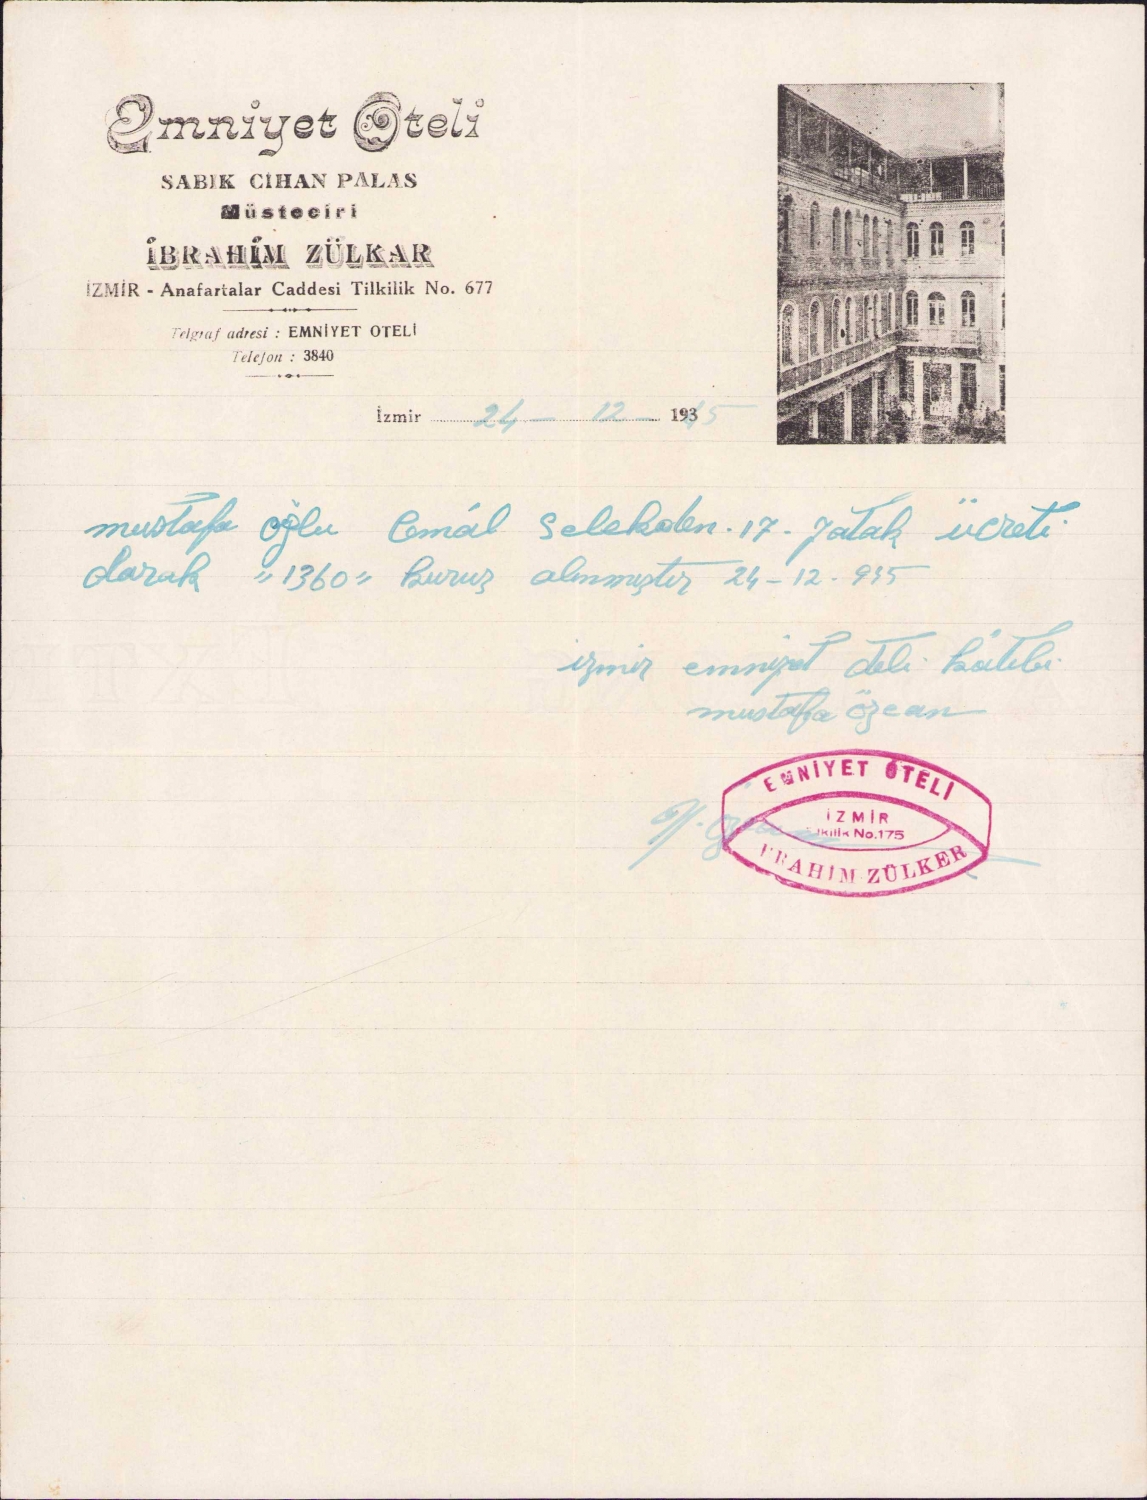 Emniyet Oteli
SABIK CİHAN PALAS
Müsteciri
İBRAHİM ZÜLKAR
İZMİR - Anafartalar Caddesi Tilkilik No. 677
Telgraf adresi : EMNİYET OTELİ
Telefon : 3840
İzmir 24 - 12 - 193
mustafa oğlu Cemâl Selekden. 17. yatak ücreti
olarak "1360" kuruş alınmıştır 24-12-945
izmir emniyet oteli kâtibi
mustafa özcan
EMNİYET OTELİ
İZMİR
No.175
İBRAHİM ZÜLKER